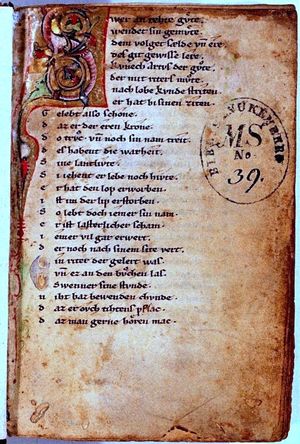 Swer an rehte gvte.
wendet sin gemvte.
dem volget sælde vn ere.
des git gewisse lere.
kvnech artvs der gvte.
der mit riters mvte.
nach lobe kvnde striten.
er hat bi sinen ziten.
Gelebt also schone.
daz er der eren krone.
do trvc vn noch sin nam treit.
des habent die warheit.
Sine lantlivte.
Si iehent er lebe noch hivte.
er hat den lop erworben.
ist im der lip erstorben.
So lebt doch iemer sin nam.
er ist lasterlicher scham
iemer vil gar erwert.
der noch nach sinem site vert.
Ein riter der gelert was.
vn er an den bvchen las
Swenner sine stvnde.
niht baz bewenden chvnde.
daz er ovch tihtens pflac.
daz man gerne hören mac.
MS
No
39.